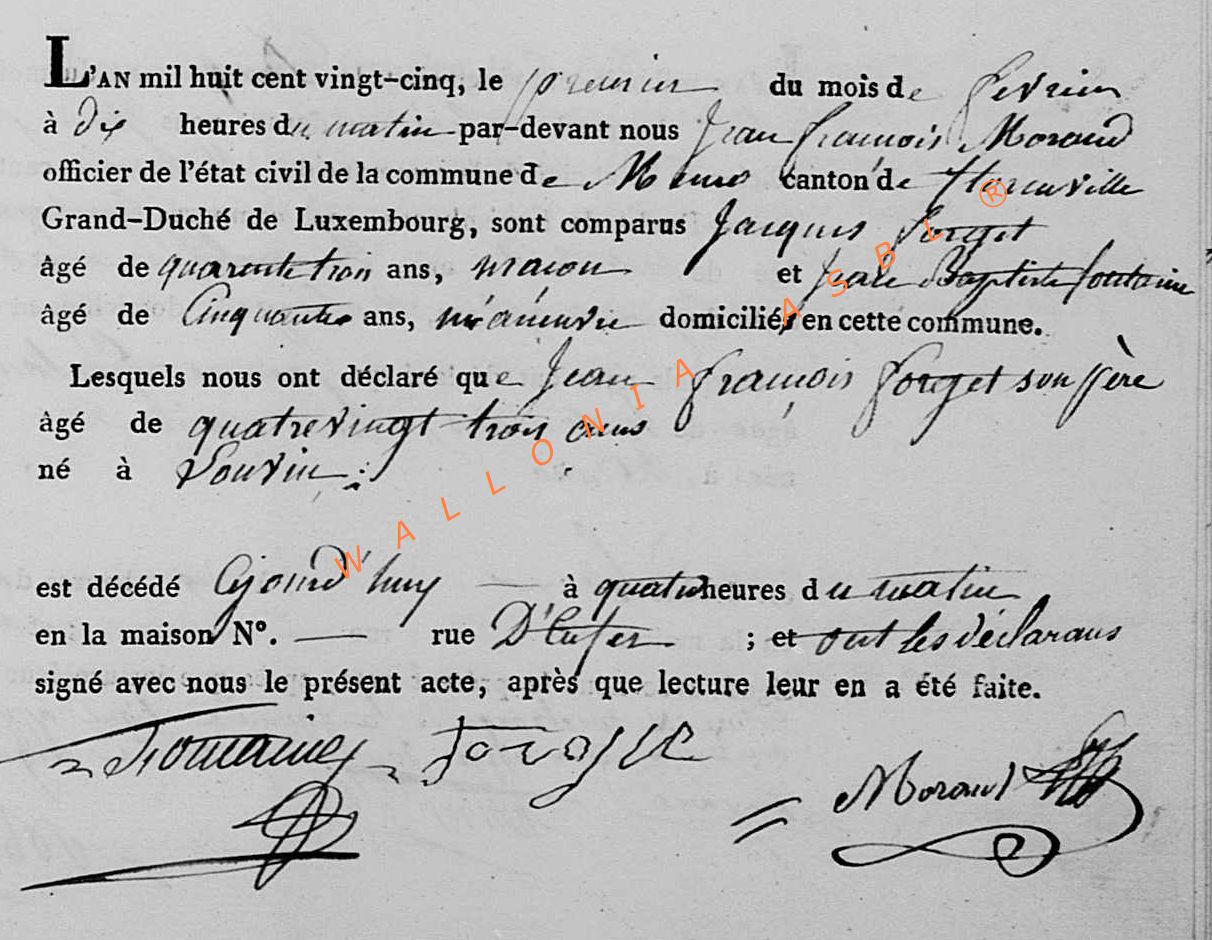 L'AN mil huit cent vingt-cinq, le premier du mois de fevrier
à dix heures du matin par-devant nous Jean francois Moraud
officier de l'état civil de la commune de Muno canton de florenville
Grand-Duché de Luxembourg, sont comparus Jacques forget
âgé de quarente trois ans, macon et Jean Baptiste fontaine
âgé de Cinquante ans, domiciliés en cette commune.
Lesquels nous ont déclaré que Jean francois forget son père
âgé de quatrevingt trois ans
né à
est décédé ajourd'huy à quatre heures du matin
en la maison N°. — rue D'Enfer ; et ont les déclarans
signé avec nous le présent acte, après que lecture leur en a été faite.
fontaine forget
Moraud
WALLONIA ASBL ®